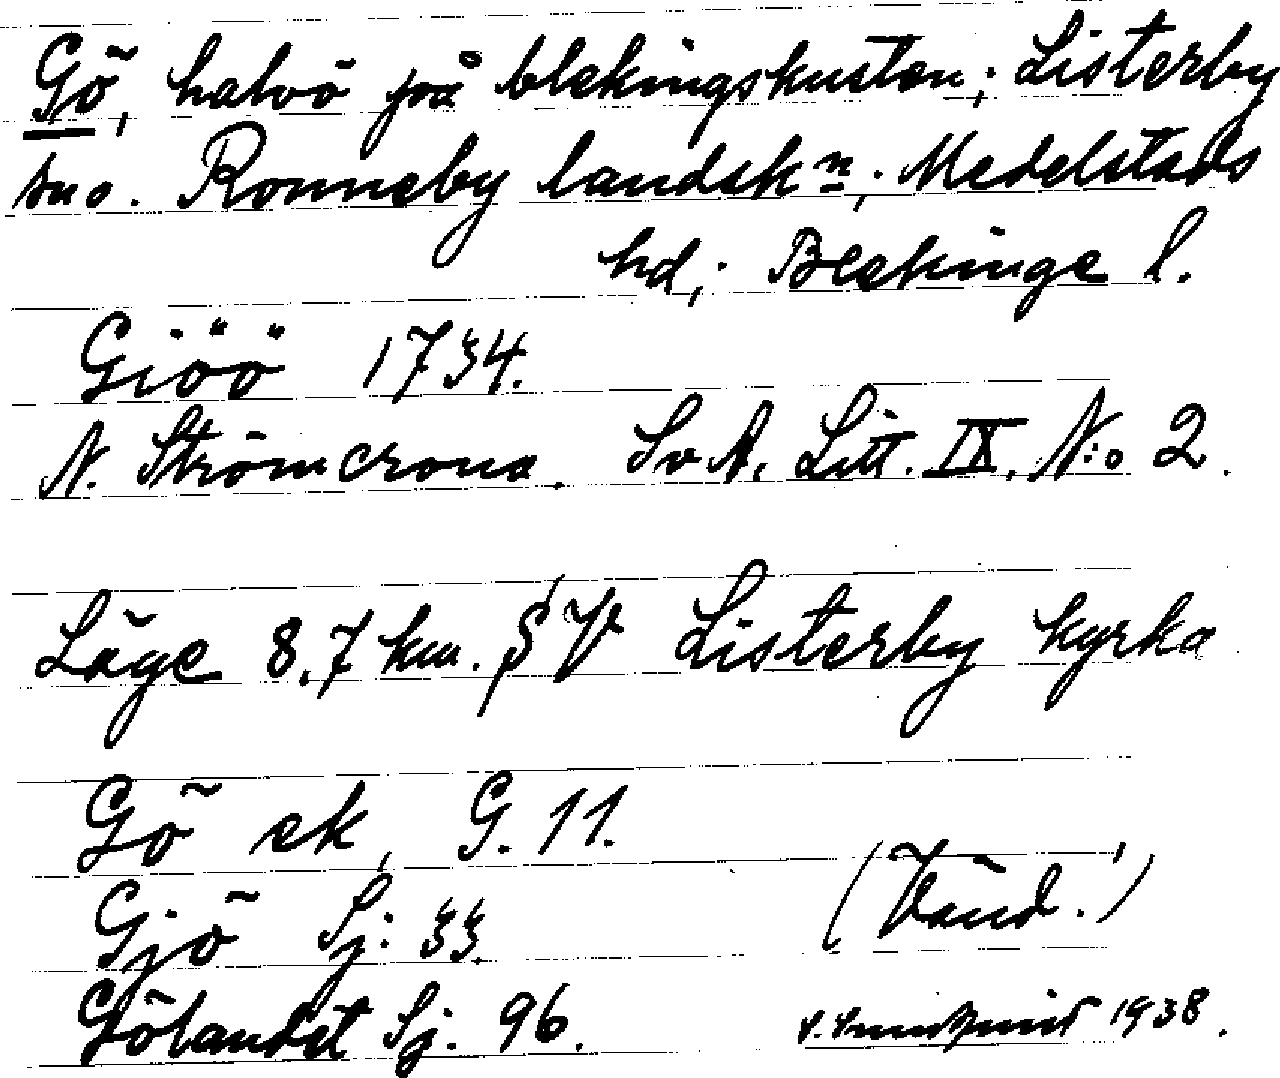 Gö, halvö på blekingskusten; Listerby
sn o. Ronneby landsk:n; Medelstads
hd; Blekinge l.
Giöö 1734.
N. Strömcrona. Sv A. Litt. IX. N:o 2.
Läge 8,7 km. SV Listerby kyrka
Gö ek, G. 11.
Gjö Sj. 33.
(Vänd!)
Gölandet Sj. 96.
1938.